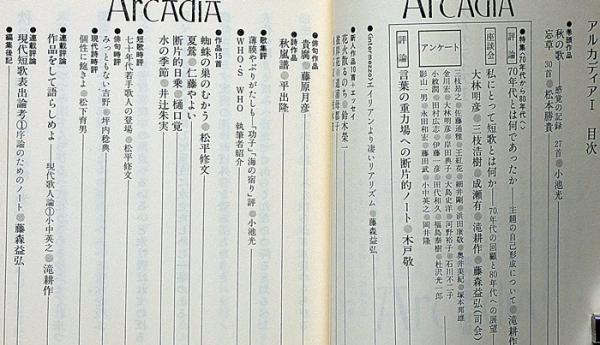 ARCADIA
ARCADIA
アルカディア I 目次
●巻頭作品
秋の歌 感覚の記録 27首●小池光
忘草 30首●松本勝貴
●特集〈70年代から80年代へ〉
評論 70年代とは何であったか 主題の自己形成について●滝耕作
座談会 私にとって短歌とは何か 70年代の回顧と80年代への展望
大林明彦●三枝浩樹●成瀬有●滝耕作●藤森益弘(司会)
アンケート
三枝昂之●佐藤通雅●王紅花●細井剛●浜田康敬●奥井美紀●塚本邦雄
金川宏●大林明彦●岸田典子●大島史洋●河野裕子●石川不二子
小枚潤●田村広志●伊藤一彦●田代和久●福島泰樹●杜沢光一郎
影山一男●永田和宏●藤田武●小中英之●岡井隆
評論 言葉の重力場への断片的ノート●木戸敬
〈Intermezzo〉エイリアンより凄いリアリズム●藤森益弘
●新人作品10首+エッセイ
花火散るのち●鈴木英一
●俳句作品
貴腐●藤原月彦
●詩作品
秋嵐譜●平出隆
●歌集評
薄膜やぶりがたしも「方子」「海の宿り」評●小池光
●WHO'S WHO 執筆者紹介
●作品15首
蜘蛛の巣のむかう●松平修文
夏鶯●仁藤やよい
断片的日乗●樋口覚
水の季節●井辻朱実
●短歌時評
七十年代若手歌人の登場●松平修文
●俳句時評
みっともない吉野●坪内稔典
●現代詩時評
個性に頼きよ●松下育男
●連載評論
作品をして語らしめよ 現代歌人論①小中英之●滝耕作
●連載評論
現代短歌表出論考①序論のためのノート●藤森益弘
●編集後記